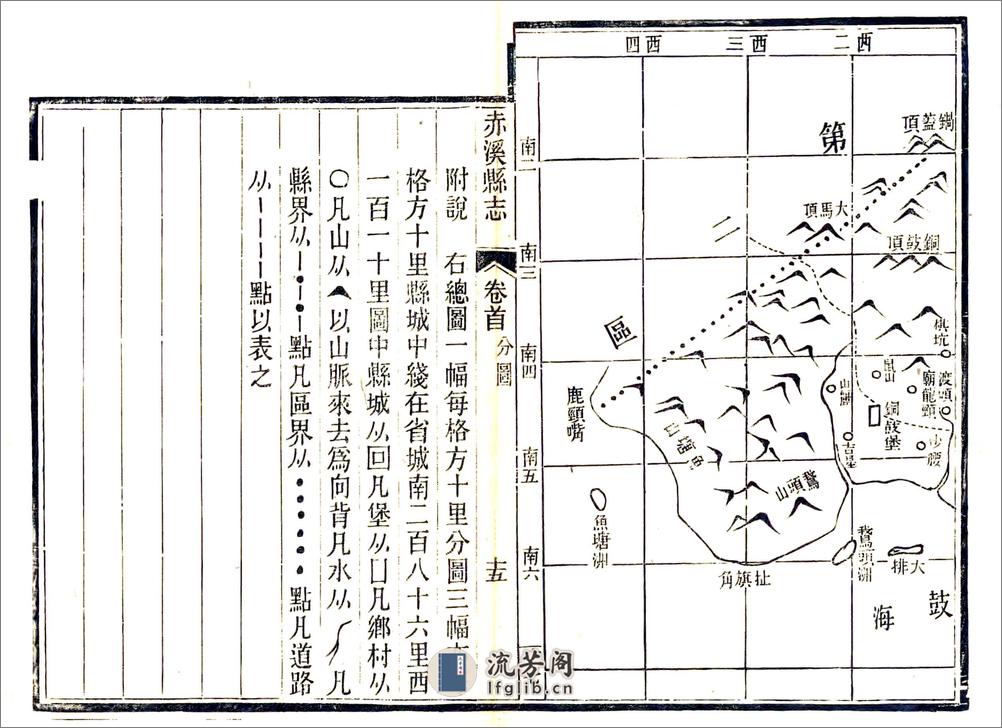 西二
西三
西四
南二
南三
南四
南五
南六
銅蓋頂
第
大馬頂
銅鼓頂
二
區
鹿頸嘴
渡頭
廟龍頸
銅鼓堡
沙腰
魚塘山
鵞頭山
魚塘洲
鵞頭洲
大排
扯旗角
鼓
海
赤溪縣志
卷首
分圖
十五
附說 右總圖一幅每格方十里分圖三幅
格方十里縣城中綫在省城南二百八十六里西
一百一十里圖中縣城从回凡堡从囗凡鄉村从
〇凡山从以山脈來去為向背凡水从凡
縣界从點凡區界从點凡道路
从點以表之
流芳阁
lfglib.cn